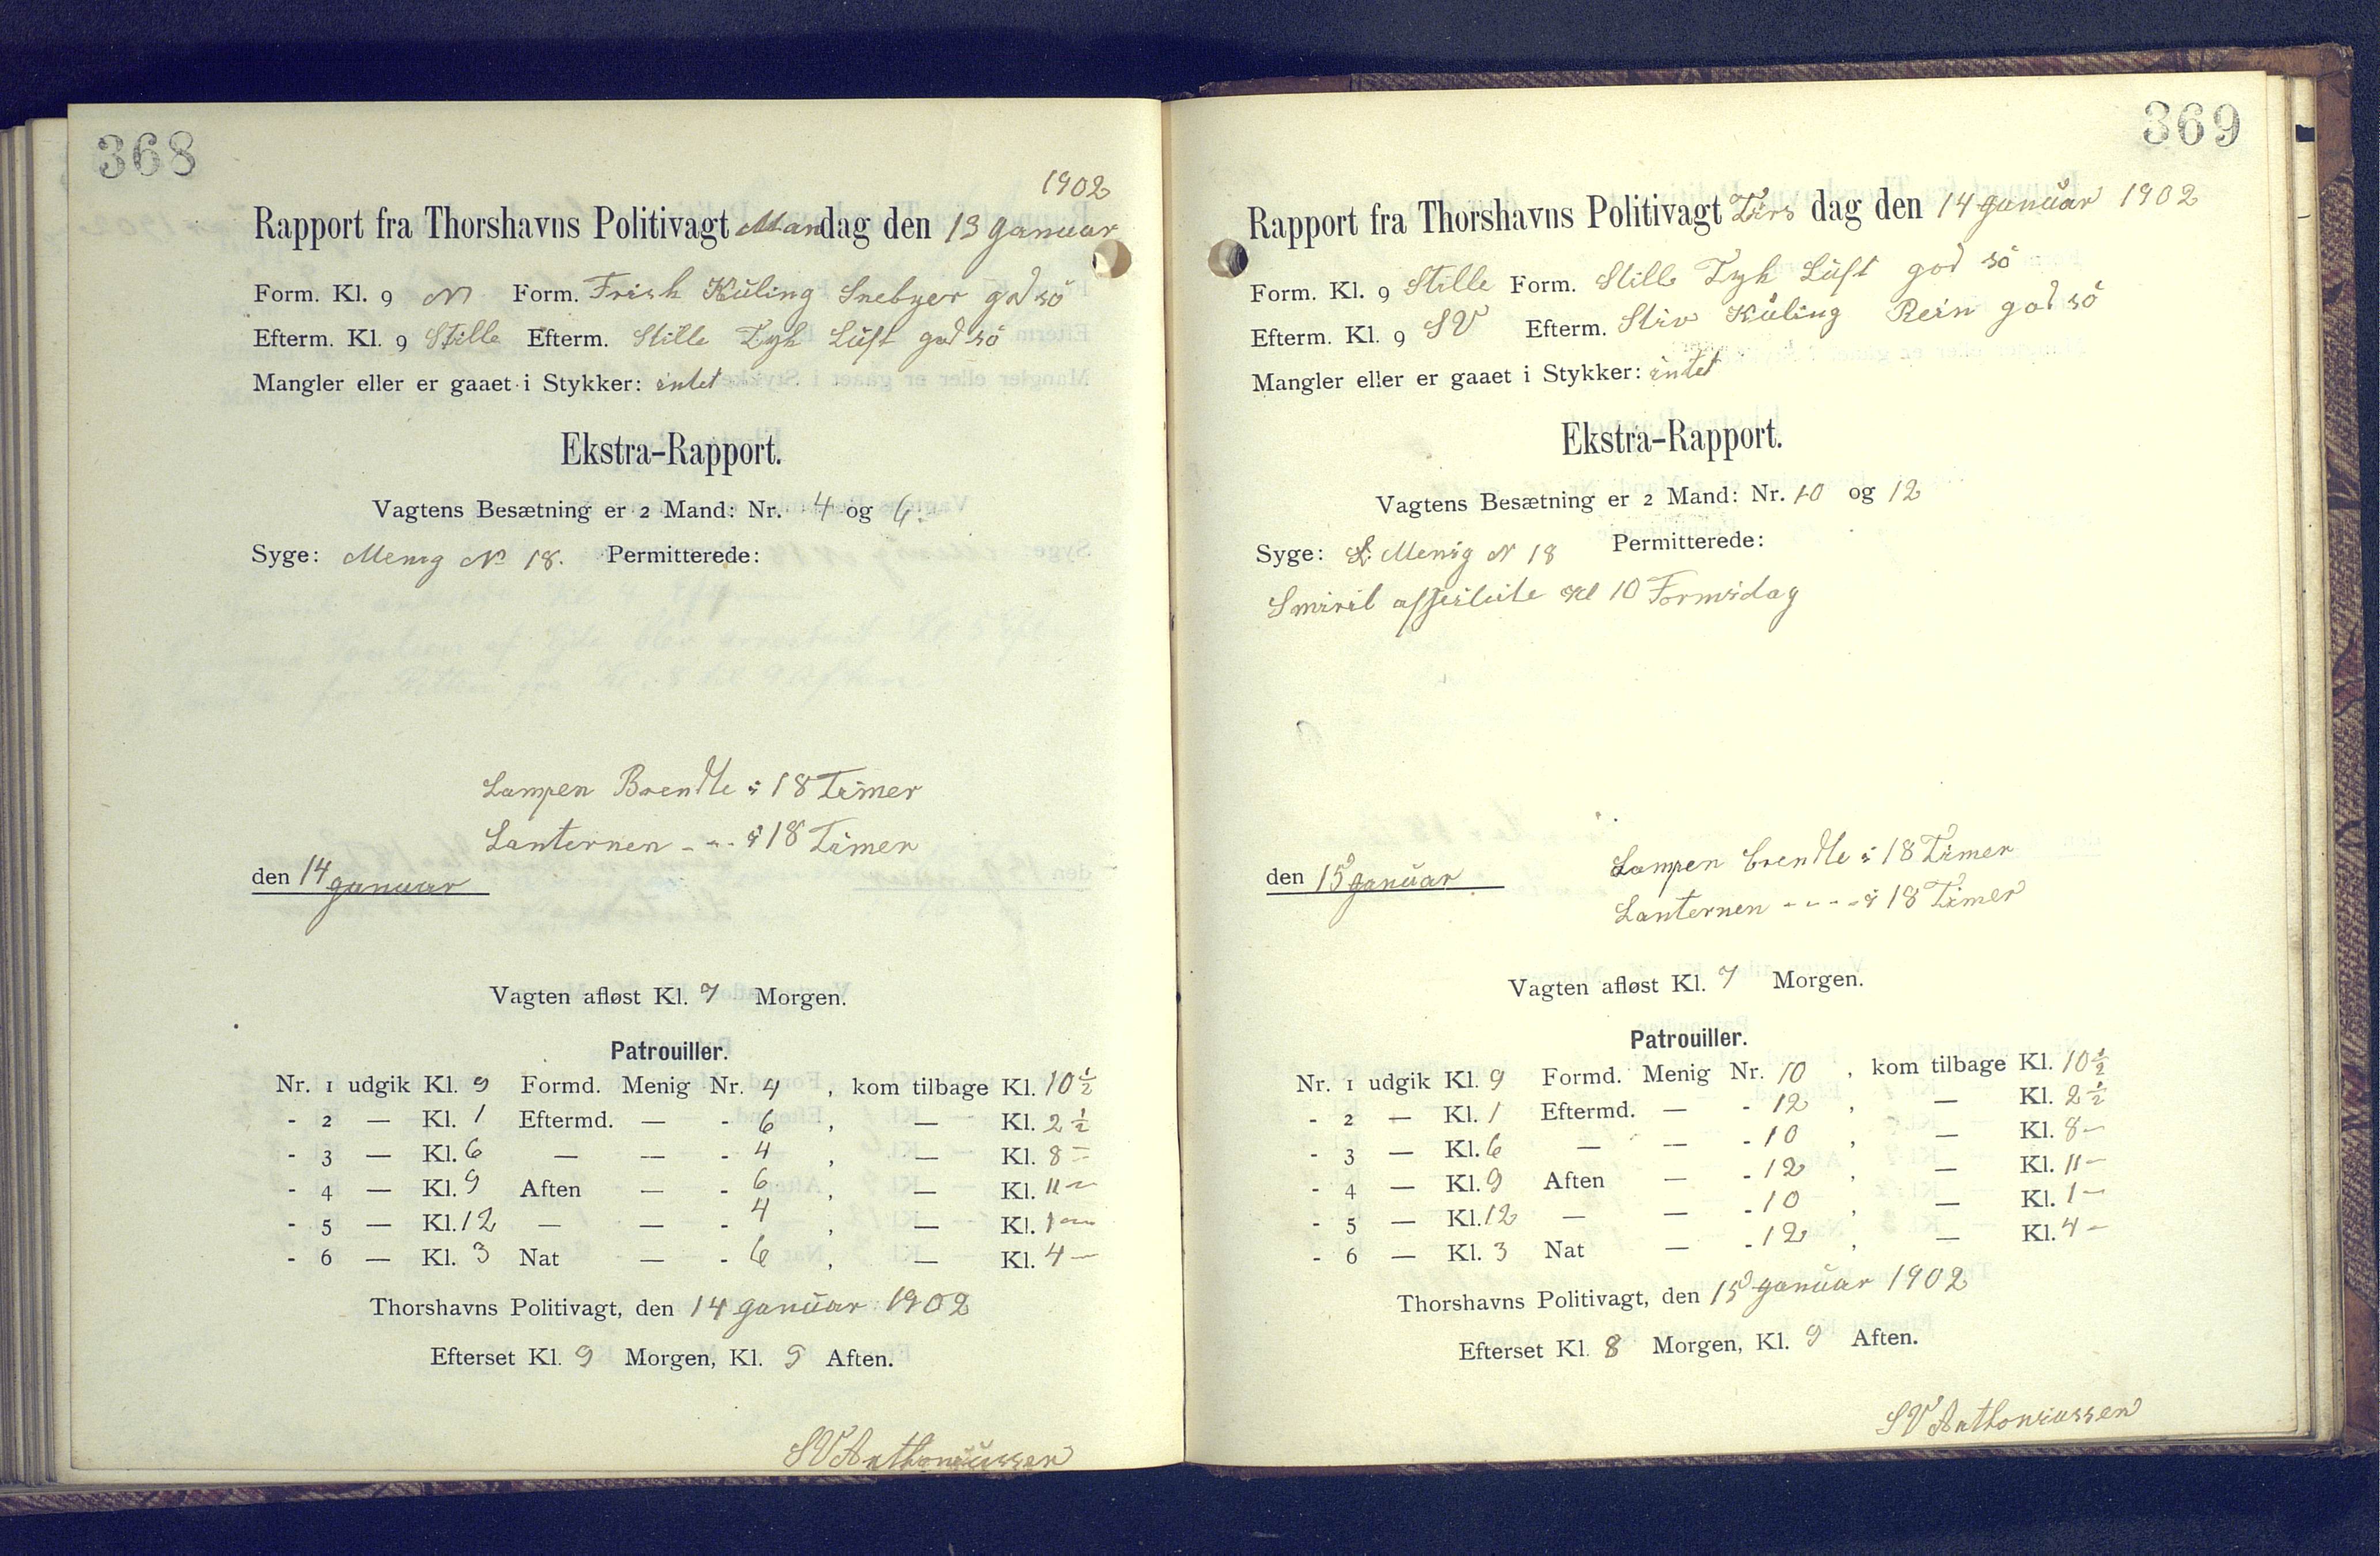 368
1902
Rapport fra Thorshavns Politivagt Mandag den 13 Januar
Form. Kl. 9 N Form. Frisk Küling Snebyer god sö
Efterm. Kl. 9 Stille Efterm. Stille Tyk Lüft god sö
Mangler eller er gaaet i Stykker: intet
Ekstra-Rapport.
Vagtens Besætning er 2 Mand: Nr. 4 og 6.
Syge: Menig N 18. Permitterede:
Lampen Brendte i 18 Timer
Lanternen - - - i 18 Timer
den 14 Januar
Vagten afløst Kl. 7 Morgen.
Patrouiller.
Nr. 1 udgik Kl. 9 Formd. Menig Nr. 4, kom tilbage Kl. 10 ½
- 2 — Kl. 1 Eftermd. — - 6, — Kl. 2 ½
- 3 — Kl. 6 — — - 4, — Kl. 8 —
- 4 — Kl. 9 Aften — - 6, — Kl. 11 —
- 5 — Kl. 12 — — - 4, — Kl. 1 —
- 6 — Kl. 3 Nat — - 6, — Kl. 4 —
Thorshavns Politivagt, den 14 Januar 1902
Efterset Kl. 9 Morgen, Kl. 9 Aften.
SVAnthoniussen
369
Rapport fra Thorshavns Politivagt Tirsdag den 14 Januar 1902
Form. Kl. 9 Stille Form. Stille Tyk Lüft god sö
Efterm. Kl. 9 SV Efterm. Stiv Küling Rein god sö
Mangler eller er gaaet i Stykker: intet
Ekstra-Rapport.
Vagtens Besætning er 2 Mand: Nr. 10 og 12
Syge: Menig N 18 Permitterede:
Smiril Kl 10 Formidag
Lampen brendte i 18 Timer
Lanternen - - - - i 18 Timer
den 15 Januar
Vagten afløst Kl. 7 Morgen.
Patrouiller.
Nr. 1 udgik Kl. 9 Formd. Menig Nr. 10, kom tilbage Kl. 10 ½
- 2 — Kl. 1 Eftermd. — - 12, — Kl. 2 ½
- 3 — Kl. 6 — — - 10, — Kl. 8 —
- 4 — Kl. 9 Aften — - 12, — Kl. 11 —
- 5 — Kl. 12 — — - 10, — Kl. 1 —
- 6 — Kl. 3 Nat — - 12, — Kl. 4 —
Thorshavns Politivagt, den 15 Januar 1902
Efterset Kl. 8 Morgen, Kl. 9 Aften.
SVAnthoniussen